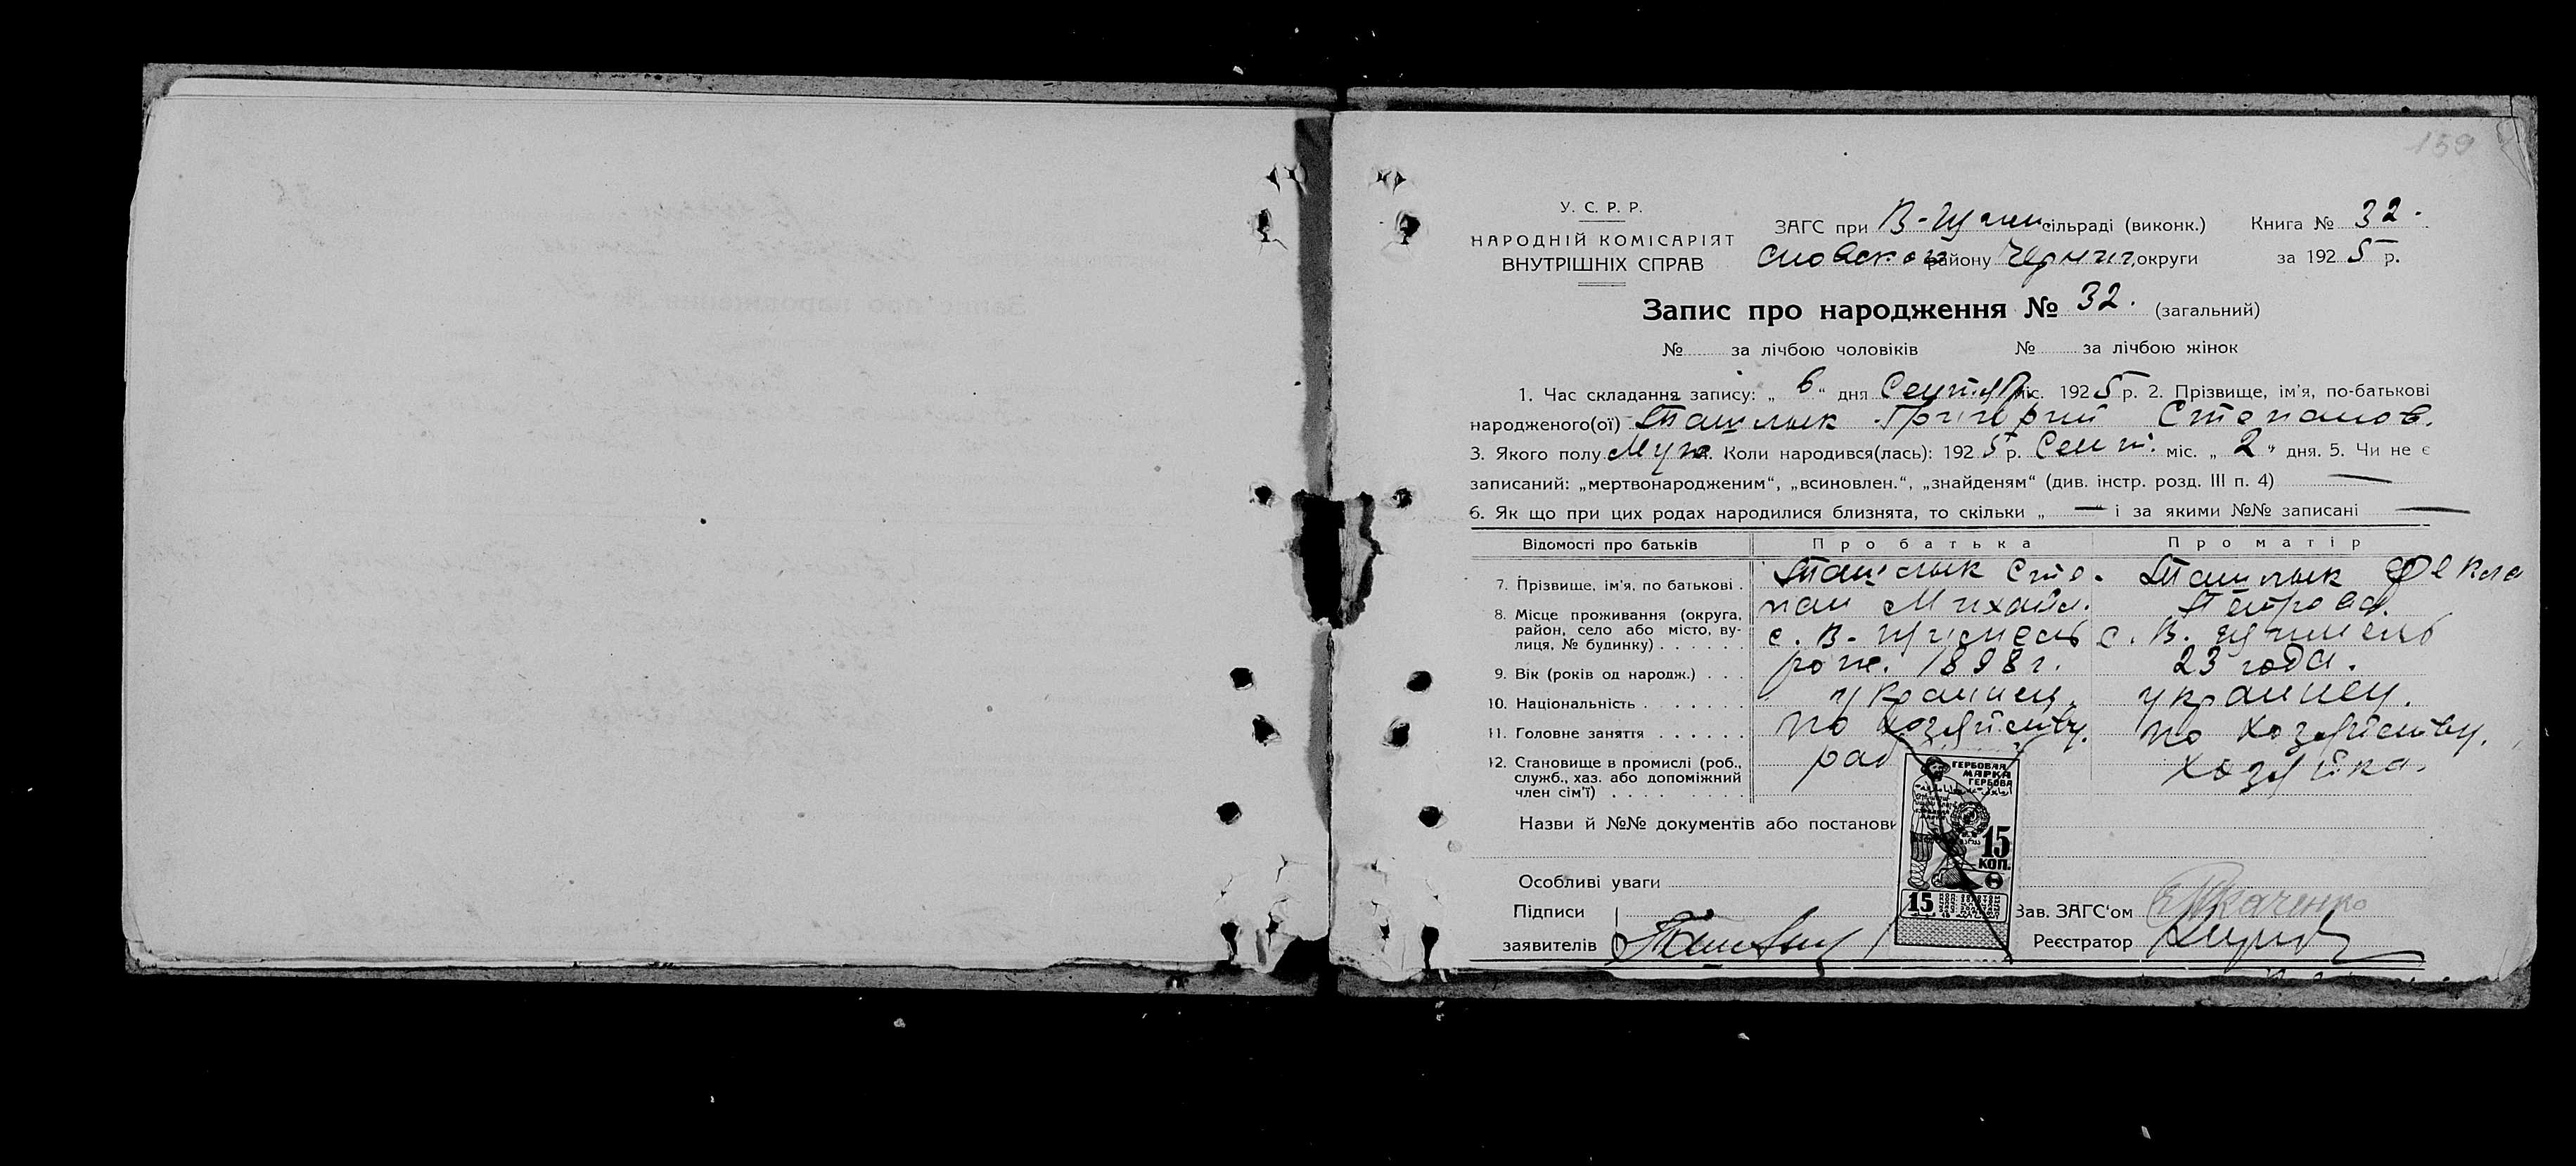 159
У. С. Р. Р.
НАРОДНІЙ КОМІСАРІЯТ
ВНУТРІШНІХ СПРАВ
ЗАГС при В- сільраді (виконк.) Книга № 32.
району Черниг. округи за 1925 р.
Запис про народження № 32. (загальний)
№ за лічбою чоловіків № за лічбою жінок
1. Час складання запису: „ 6 “ дня Сентяб міс. 1925 р. 2. Прізвище, ім'я, по-батькові
народженого(ої) Ташлык Григорий Степанов.
3. Якого полу Муж. Коли народився(лась): 1925 р. Сент. міс. „ 2 “ дня. 5. Чи не є
записаний: „мертвонародженим“, „всиновлен.“, „знайденям“ (див. інстр. розд. III п. 4) —
6. Як що при цих родах народилися близнята, то скільки „ — “ і за якими №№ записані —
Відомості про батьків Про батька Про матір
7. Прізвище, ім'я, по батькові . Ташлык Сте- Ташлык Фекла
пан Михайл. Петровa.
8. Місце проживання (округа,
район, село або місто, ву-
лиця, № будинку) . . . . . . с. В- с. В.
9. Вік (років од народж.) . . . рож. 1898 г. 23 года.
10. Національність . . . . . . . украинец. украинец.
11. Головне заняття . . . . . . по хозяйству. по хозяйству.
12. Становище в промислі (роб.,
служб., хаз. або допоміжний
член сім'ї) . . . . . . . . . раб хозяйка.
Назви й №№ документів або постанови
ГЕРБОВАЯ
МАРКА
ГЕРБОВА
15
КОП.
15
Особливі уваги
Підписи Зав. ЗАГС'ом Ткаченко
заявителів Реєстратор